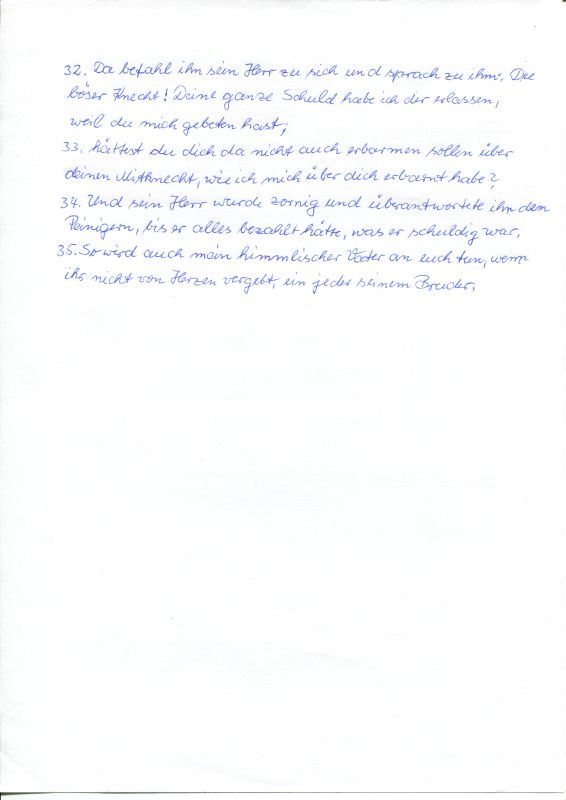 32. Da befahl ihn sein Herr zu sich und sprach zu ihm: Du
böser Knecht! Deine ganze Schuld habe ich der erlassen,
weil du mich gebeten hast;
33. hättest du dich da nicht auch erbarmen sollen über
deinen Mitknecht, wie ich mich über dich erbarmt habe?
34. Und sein Herr wurde zornig und überantwortete ihn den
Peinigern, bis er alles bezahlt hätte, was er schuldig war.
35. So wird auch mein himmlischer Vater an euch tun, wenn
ihr nicht von Herzen vergebt, ein jeder seinem Bruder.